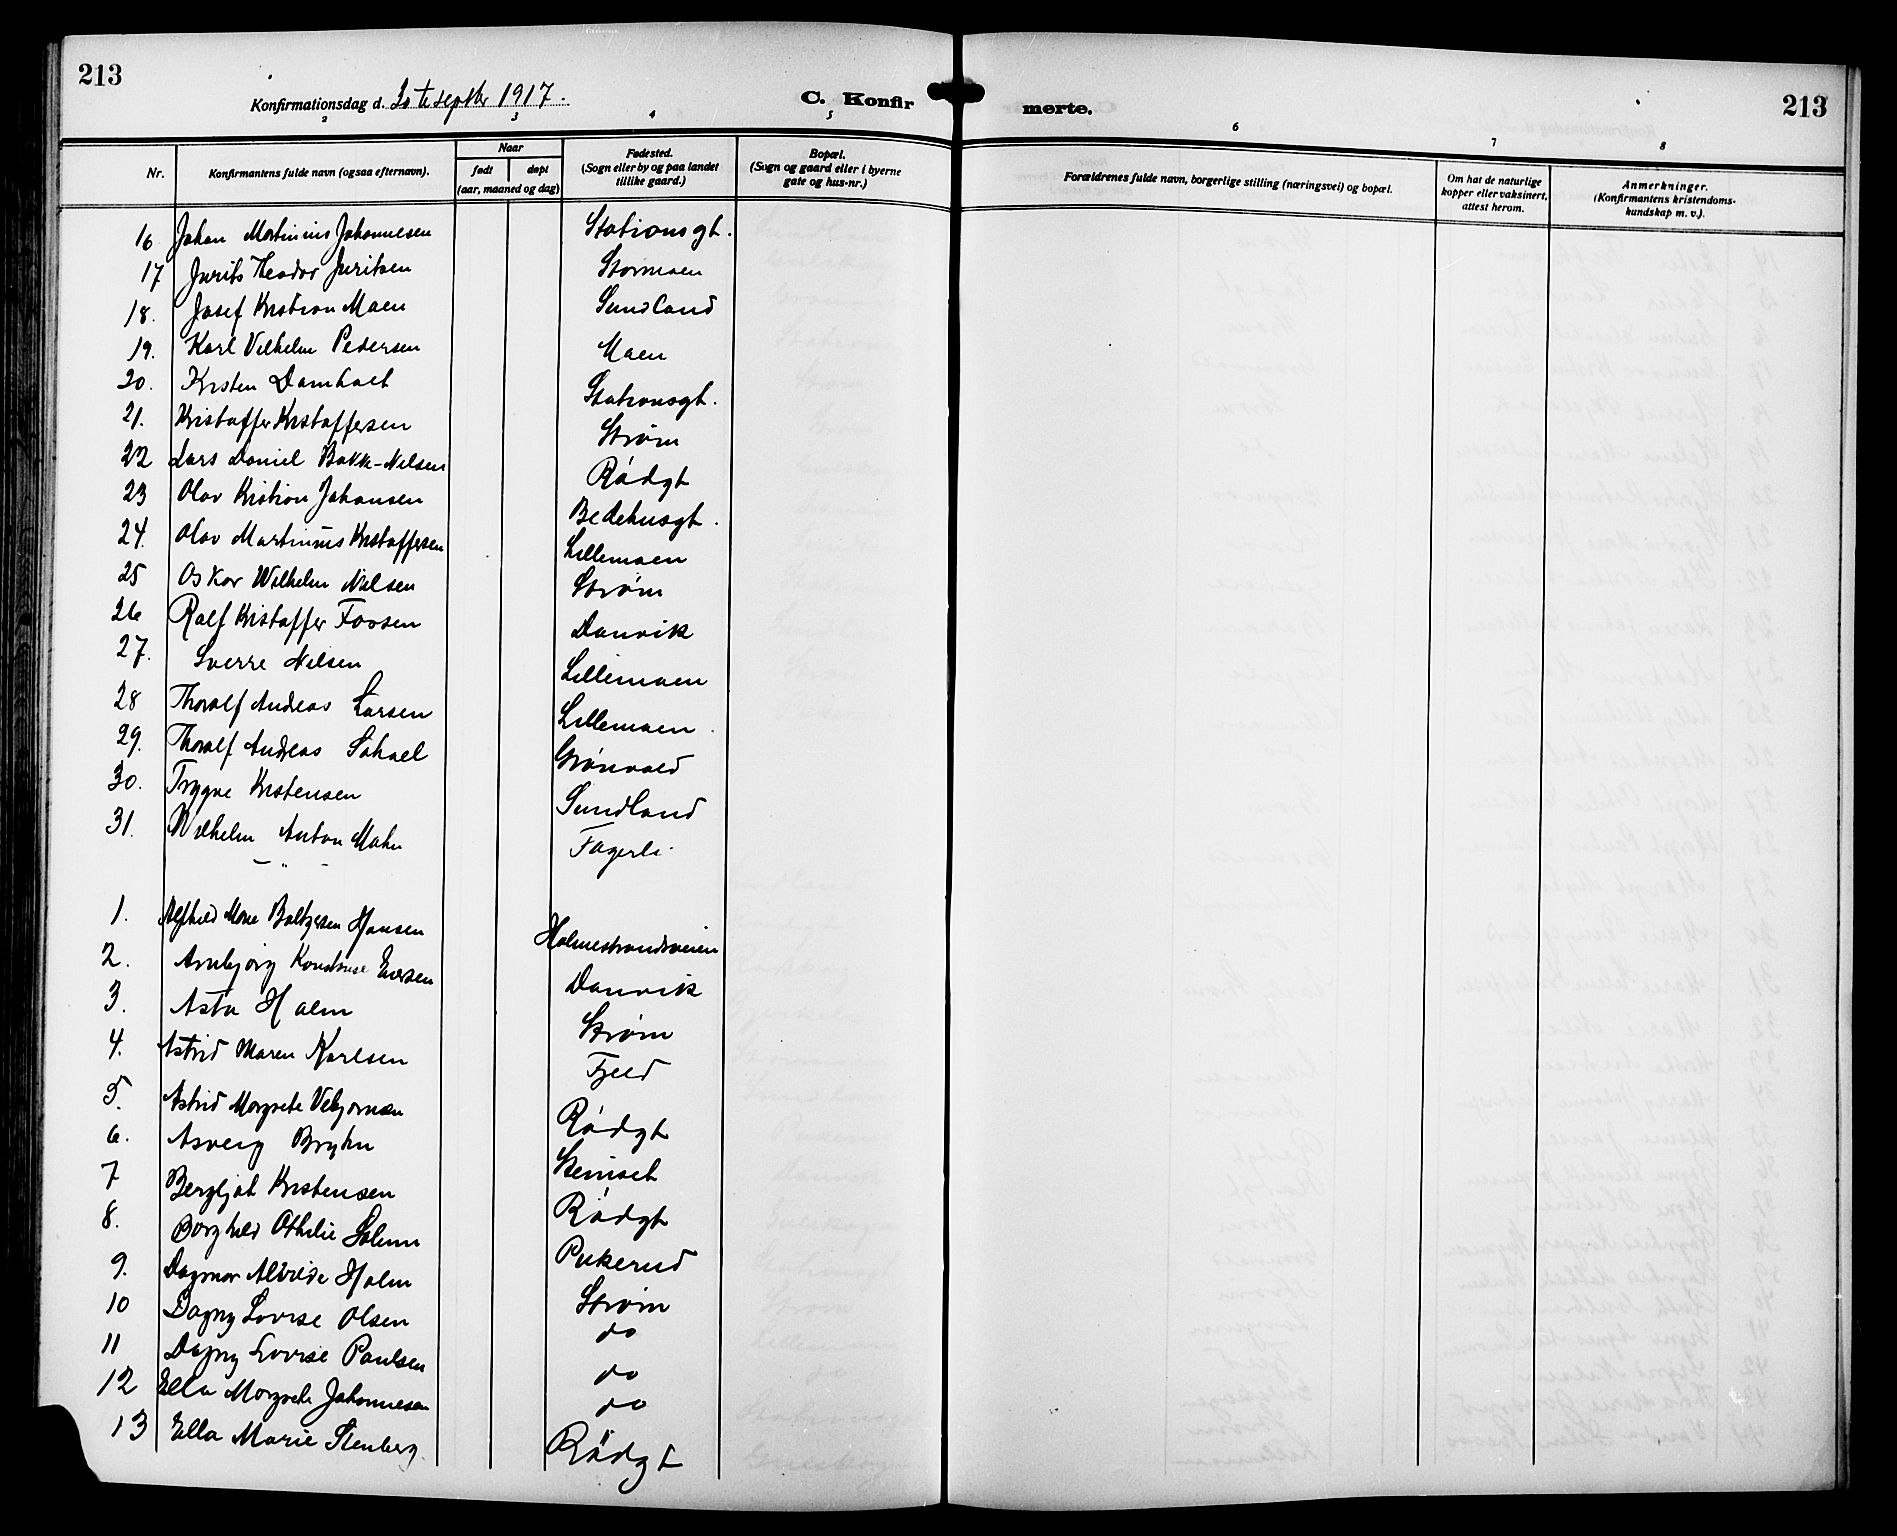 213
Konfirmationsdag d. 30te septbr 1917.
C. Konfir
merte.
213
2 3 4 5 6 7 8
Nr.
Konfirmantens fulde navn (ogsaa efternavn).
Naar
født
døpt
(aar, maaned og dag)
Fødested.
(Sogn eller by og paa landet
tillike gaard.)
Bopæl.
(Sogn og gaard eller i byerne
gate og hus-nr.)
Forældrenes fulde navn, borgerlige stilling (næringsvei) og bopæl.
Om hat de naturlige
kopper eller vaksinert,
attest herom.
Anmerkninger.
(Konfirmantens kristendoms-
kundskap m. v.).
16 Johan Martinius Johannesen Stationsgt.
17 Jurits Theodor Juritsen Stormoen
18. Josef Kristian Moen Sundland
19. Karl Vilhelm Pedersen Moen
20. Kristen Damholt Stationsgt.
21. Kristoffer Kristoffersen Strøm
22 Lars Daniel Bakke-Nilsen Rådgt
23 Olav Kristian Johansen Bedehusgt.
24. Olav Martinius Kristoffersen Lillemoen
25 Oskar Wilhelm Nilsen Strøm
26 Ralf Kristoffer Fossen Danvik
27. Sverre Nilsen Lillemoen
28 Thoralf Andreas Larsen Lillemoen.
29. Thoralf Andreas Schael Grønvold
30. Trygve Kristensen Sundland
31. Wilhelm Anton Mohn Fagerli
– " –
1. Alfhild Marie Baltzersen Hansen Holmestrandsveien
2. Arnbjørg Konstanse Eversen Danvik
3. Asta Holm Strøm
4. Astrid Maren Karlsen Fjeld
5. Astrid Margrete Vebjørnsen Rådgt
6. Asveig Bryhn Stenset
7 Bergljot Kristensen Rådgt
8. Borghild Othelie Solum Pukerud
9. Dagmar Alvilde Holm Strøm
10 Dagny Lovise Olsen do
11 Dagny Lovise Paulsen do
12 Ella Margrete Johannesen do
13 Ella Marie Stenberg. Rådgt